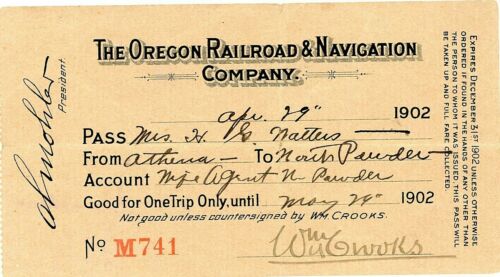 THE OREGON RAILROAD & NAVIGATION
COMPANY.
Apr. 29" 1902
PASS Mrs. H. G. Watters
From Athena To North Powder
Account Wife Agent N. Powder
Good for One Trip Only, until May 29" 1902
Not good unless countersigned by WM. CROOKS.
No M741
Wm Crooks
A L Mohler
President.
EXPIRES DECEMBER 31ST 1902, UNLESS OTHERWISE
ORDERED. IF FOUND IN THE HANDS OF ANY OTHER THAN
THE PERSON TO WHOM IT WAS ISSUED, THIS PASS WILL
BE TAKEN UP AND FULL FARE COLLECTED.